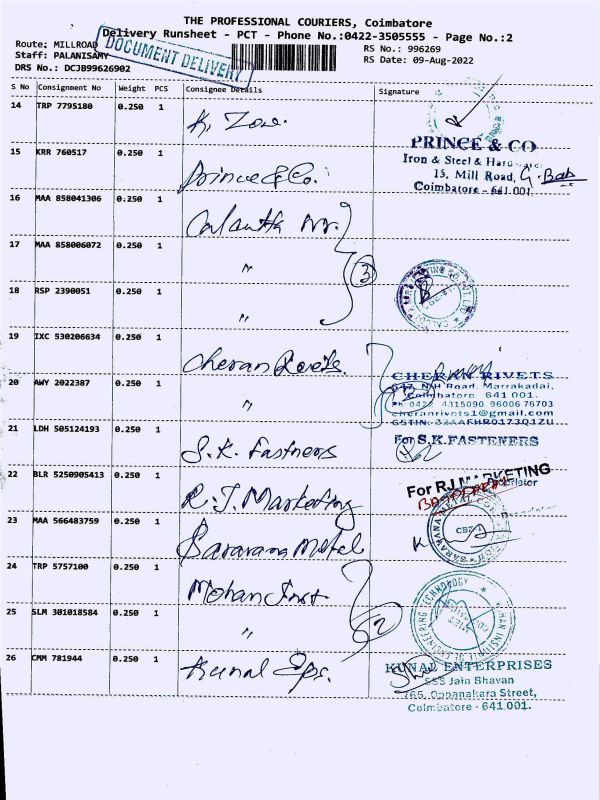 THE PROFESSIONAL COURIERS, Coimbatore
Delivery Runsheet - PCT - Phone No.:0422-3505555 - Page No.:2
Route: MILLROAD
DOCUMENT DELIVERY
RS No.: 996269
Staff: PALANISAMY
RS Date: 09-Aug-2022
DRS No.: DCJB99626902
S No Consignment No Weight PCS Consignee Details Signature
14 TRP 7795180 0.250 1
K. Zone
15 KRR 760517 0.250 1
Prince & Co.
PRINCE & CO
Iron & Steel & Hardware
15, Mill Road,
Coimbatore - 641 001.
16 MAA 858041306 0.250 1
17 MAA 858006072 0.250 1
"
3
18 RSP 2390051 0.250 1
"
19 IXC 530206634 0.250 1
Cheran Rivets.
CHERAN RIVETS
20 AWY 2022387 0.250 1
"
N.H Road, Marrakadai,
Coimbatore 641 001
Ph 0422 4315090, 96006 76703
cheranrivets1@gmail.com
21 LDH 505124193 0.250 1
S.K. Fastners
For S.K.FASTENERS
22 BLR 5250905413 0.250 1
R.J. Marketing
For RJ MARKETING
23 MAA 566483759 0.250 1
Saravana Metel
24 TRP 5757100 0.250 1
Mohan Inst
25 SLM 301018584 0.250 1
"
2
26 CMM 781944 0.250 1
Kunal Eps.
KUNAL ENTERPRISES
555 Jain Bhavan
765, Oppanakara Street,
Coimbatore - 641 001.